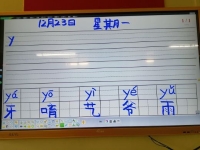 12月23日 星期一
y
yá yō yì yé yǔ
牙 唷 艺 爷 雨